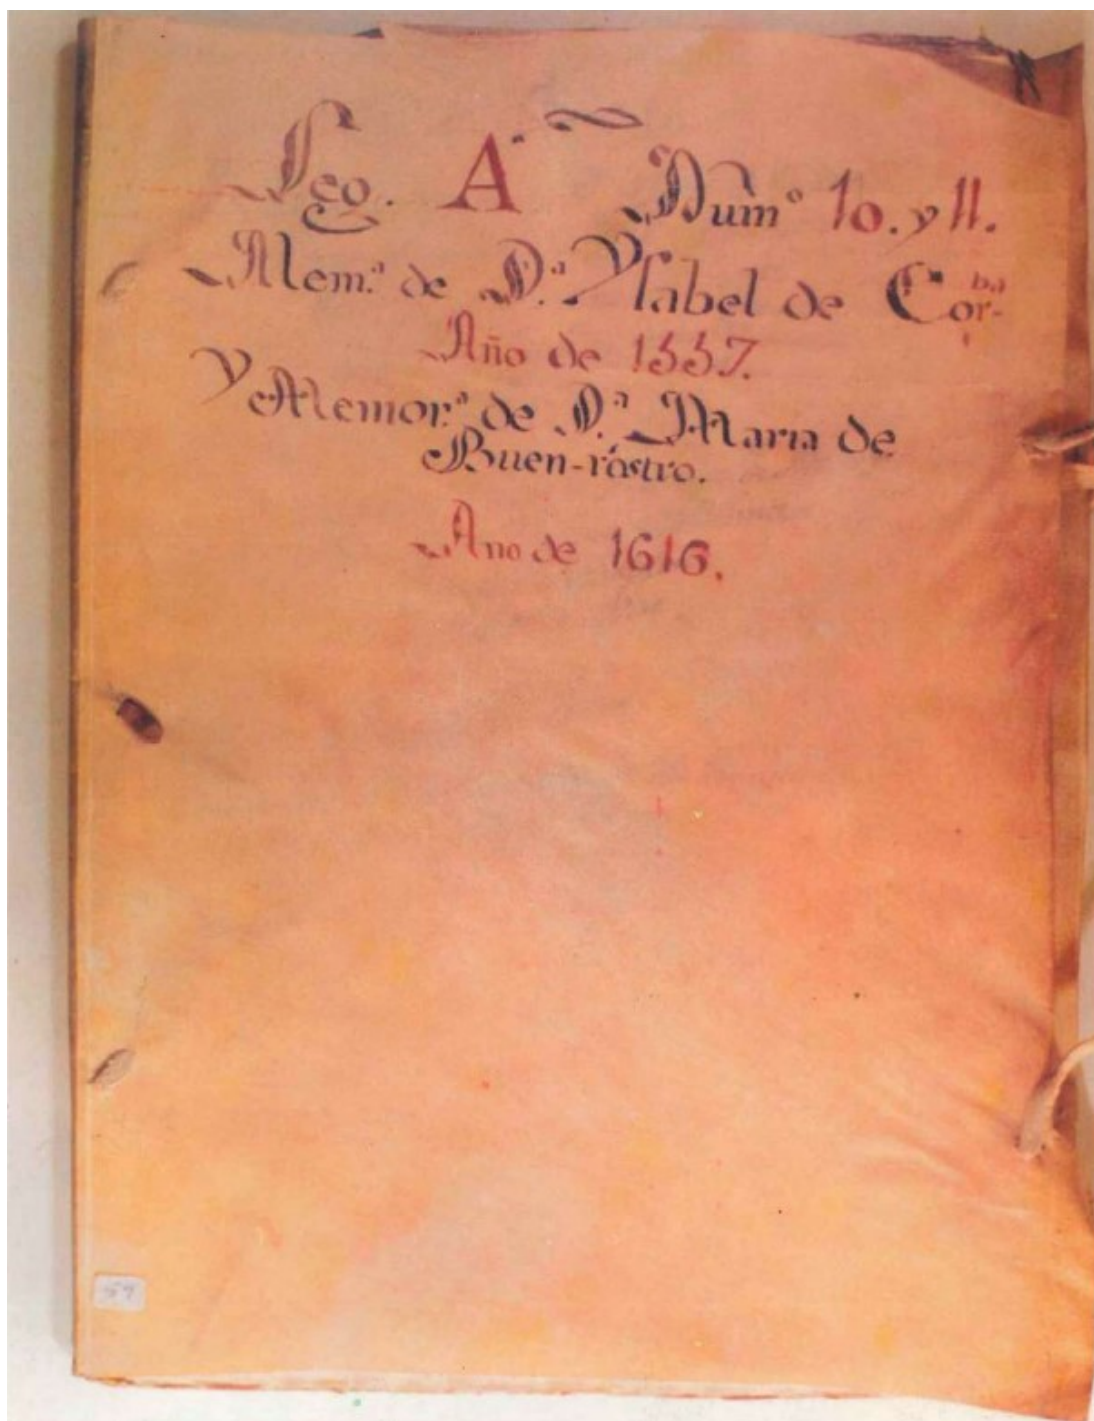 Leg. A. Num° 10. y 11.
Mem.ª de D.ª Ysabel de Cor-ba
Año de 1557.
Y Memor.ª de D.ª Maria de
Buen-rostro.
Año de 1616.
57